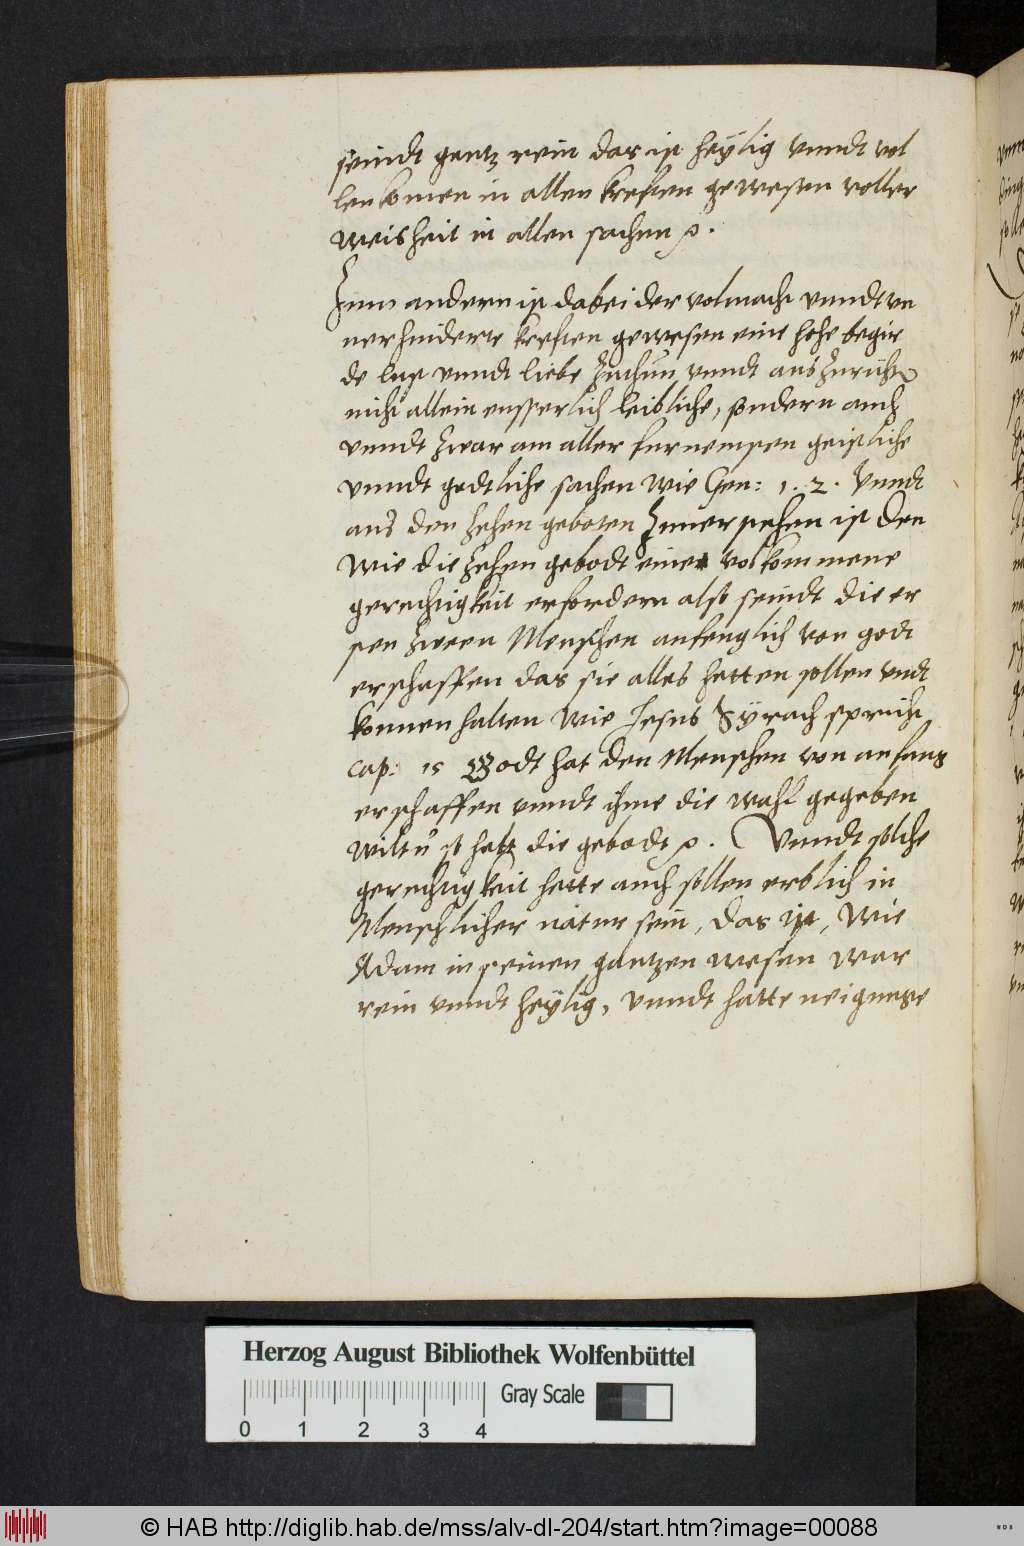 seindt gantz rein das ist heÿlig vnndt vol
lenkomen in allen kreften gewesen voller
weisheit in allen sachen ꝛc.
Zum andern ist dabei der volmacht vnndt vn
uerhinderte kreften gewesen eine hohe begir
de lust vnndt liebe Zuthun vnndt auszurichten
nicht allein eusserlich leibliche, sondern auch
vnndt zwar am aller furnemsten geistliche
vnndt godtliche sachen wie Gen: 1. 2. Vnndt
aus den zehen geboten Zuuerstehen ist den
wie die zehen gebodt eine volkommene
gerechtigkeit erfordern also seindt die er
sten zween Menschen anfenglich von godt
erschaffen das sie alles hetten sollen vndt
konnen halten wie Jesus Sÿrach spricht
cap: 15 Godt hat den Menschen von anfang
erschaffen vnndt ihme die wahl gegeben
wiltu so halt die gebodt ꝛc. Vnndt solche
gerechtigkeit hette auch sollen erblich in
Menschlicher natur sein, das ist, wie
Adam in seinen gantzen wesen war
rein vnndt heÿlig, vnndt hatte neigunge
Herzog August Bibliothek Wolfenbüttel
Gray Scale
0 1 2 3 4
© HAB http://diglib.hab.de/mss/alv-dl-204/start.htm?image=00088